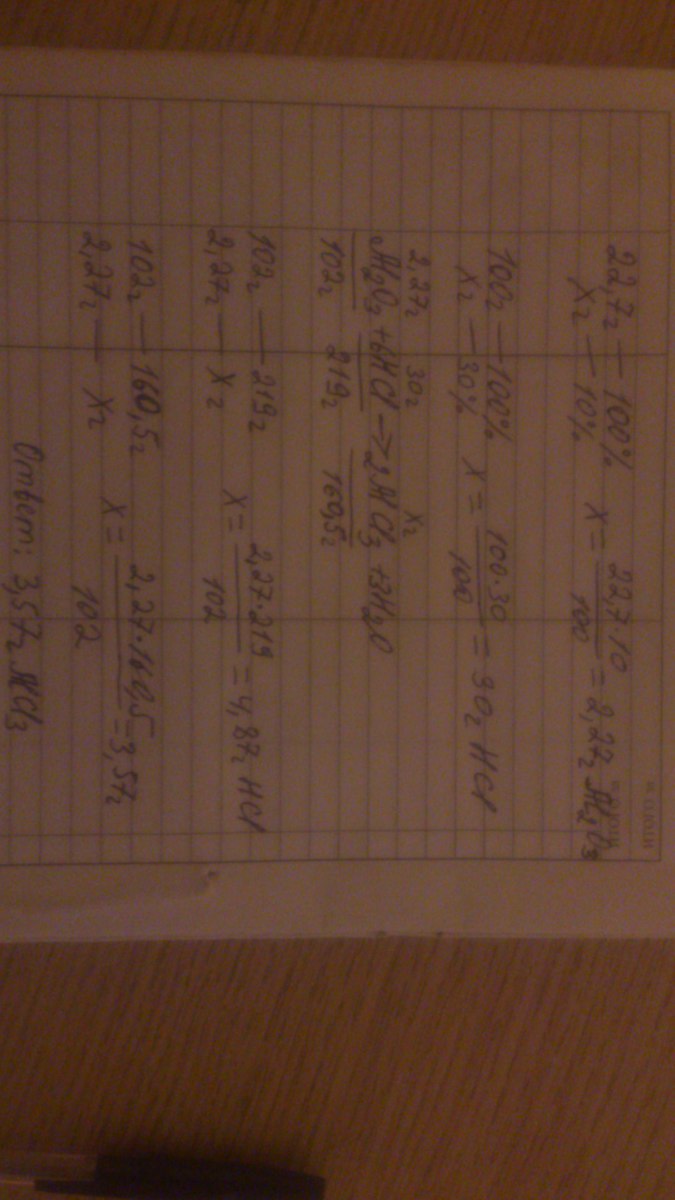 ИТОГО:
22,7г — 100%
xг — 10%
x = 22,7·10 / 100 = 2,27г Al2O3
100г — 100%
xг — 30%
x = 100·30 / 100 = 30г HCl
2,27г 30г xг
Al2O3 + 6HCl → 2AlCl3 + 3H2O
102г 219г 160,5г
102г — 219г
2,27г — xг
x = 2,27·219 / 102 = 4,87г HCl
102г — 160,5г
2,27г — xг
x = 2,27·160,5 / 102 = 3,57г
Ответ: 3,57г AlCl3